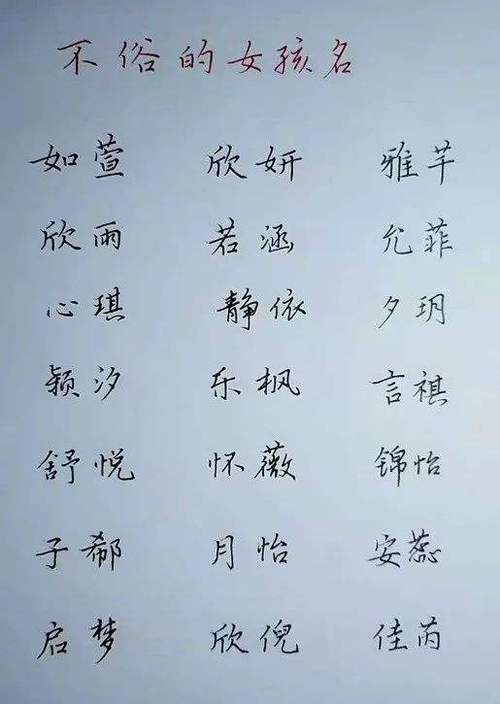 不俗的女孩名
如萱 欣妍 雅芊
欣雨 若涵 允菲
心琪 静依 夕玥
颖汐 乐枫 言祺
舒悦 怀薇 锦怡
子郗 月怡 安蕊
启梦 欣倪 佳芮